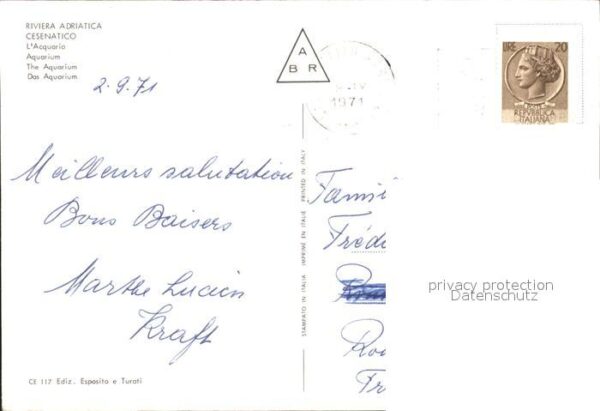 RIVIERA ADRIATICA
CESENATICO
L'Acquario
Aquarium
The Aquarium
Das Aquarium
2.9.71
A
B R
1971
LIRE 20
REPVBBLICA
ITALIANA
Meilleurs salutation
Bons Baisers
Marthe Lucien
Kraft
STAMPATO IN ITALIA IMPRIMÉ EN ITALIE PRINTED IN ITALY
Fami
Frédé
Ro
Fr
privacy protection
Datenschutz
CE 117 Ediz. Esposito e Turati